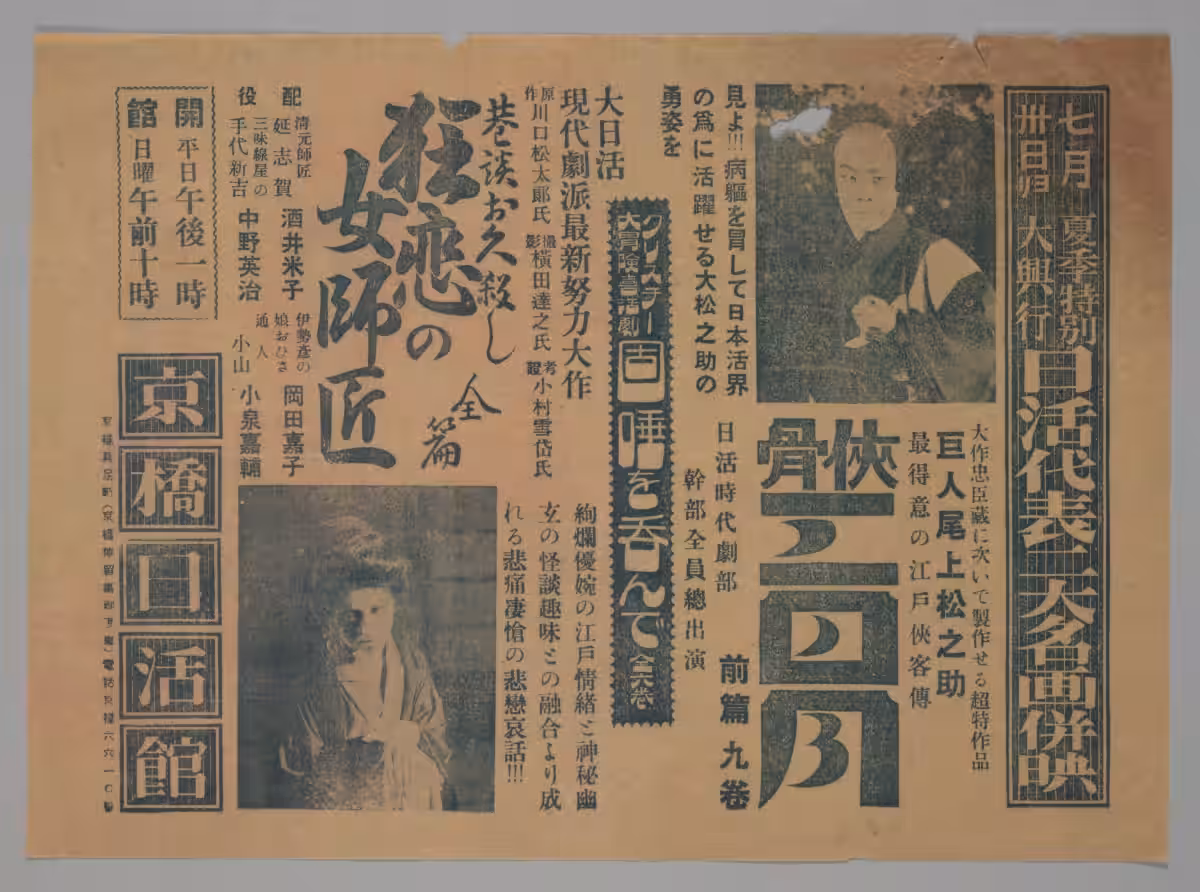 七月卅日ヨリ
夏季特別大興行
日活代表二大名画併映
大作忠臣蔵に次いで製作せる超特作品
巨人尾上松之助
最得意の江戸俠客傳
俠骨三日月
前篇九卷
日活時代劇部
幹部全員總出演
見よ!!!病軀を冒して日本活界
の為に活躍せる大松之助の
勇姿を
クリスチー
大冒險喜活劇
固唾を呑んで
全六卷
大日活
現代劇派最新努力大作
原作 川口松太郎氏
撮影 横田達之氏
考證 小村雪岱氏
巷談お久殺し
全篇
狂恋の
女師匠
絢爛優婉の江戸情緒と神秘幽
玄の怪談趣味との融合より成
れる悲痛凄愴の悲戀哀話!!!
配役
清元師匠
延志賀
酒井米子
三味線屋の
手代新吉
中野英治
伊勢彦の
娘おひさ
岡田嘉子
通人
小山
小泉嘉輔
開館
平日午後一時
日曜午前十時
京橋日活館